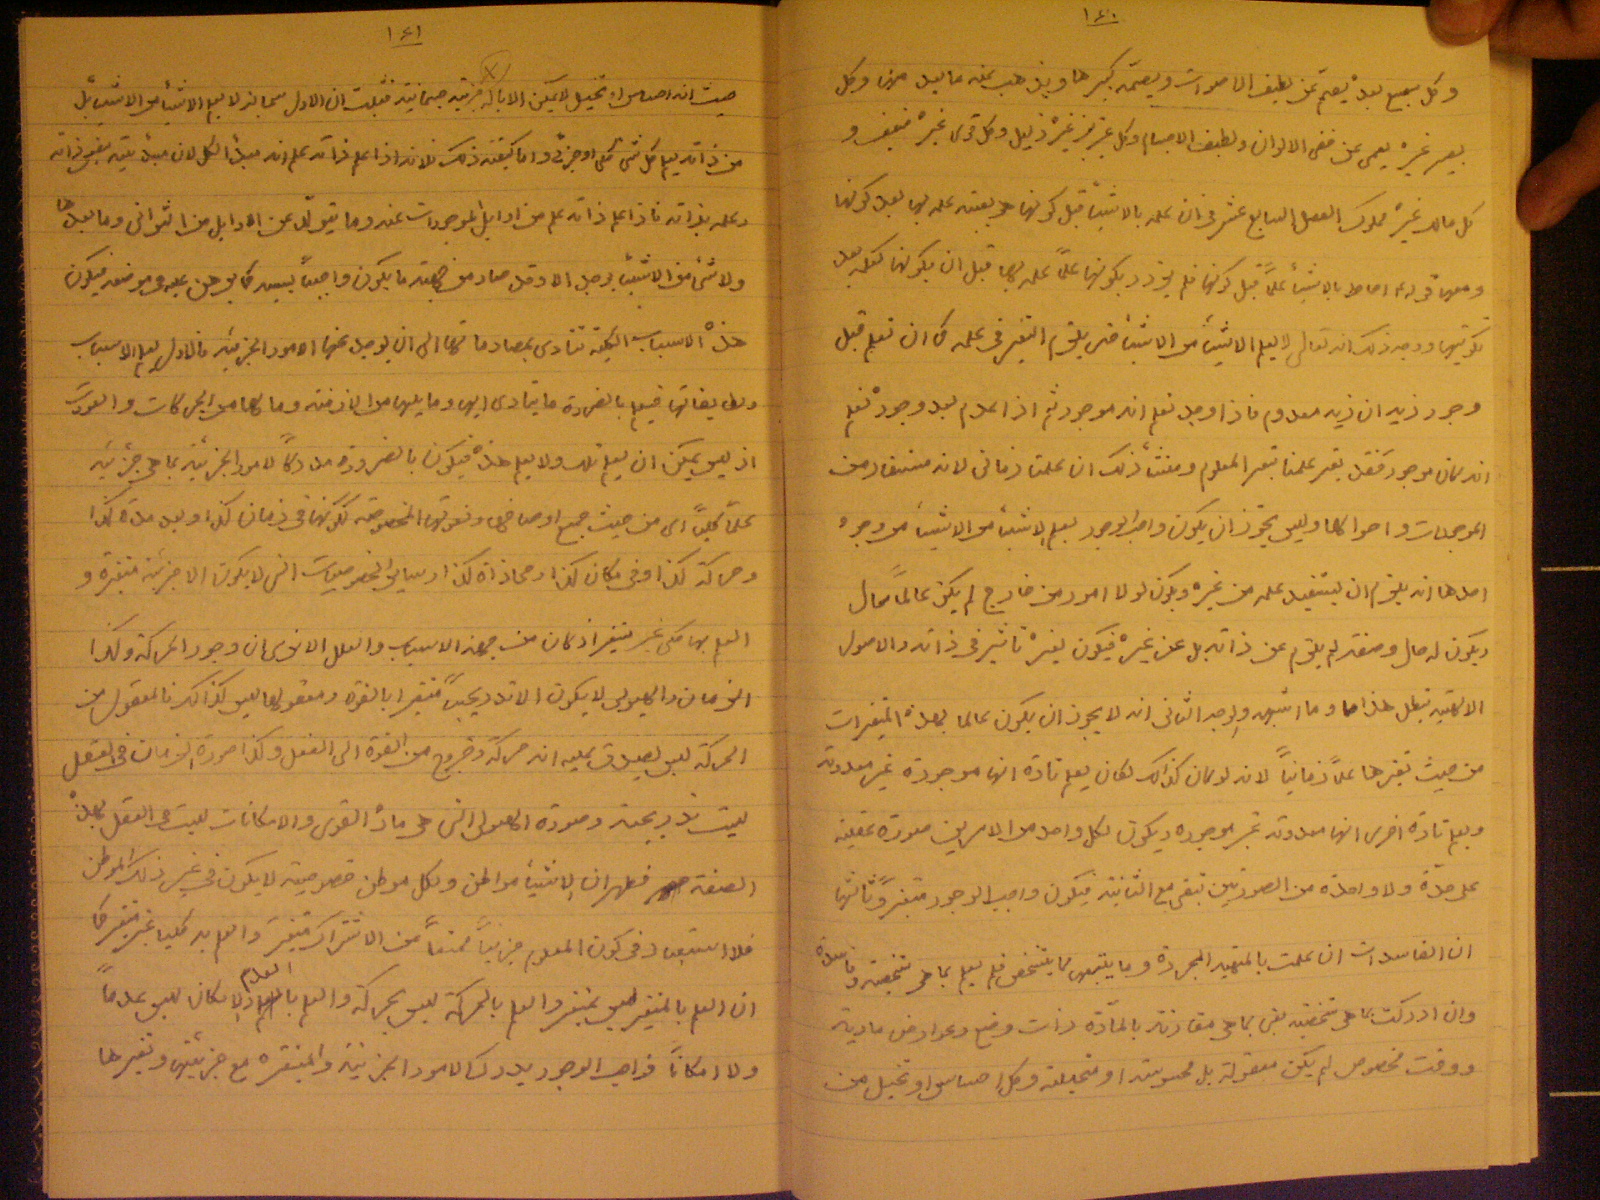 ١٤٠
وكل سميع بعده يصم عن لطيف الاصوات ويصمه كبيرها ويذهب عنه ما بعد منها وكل
بصير غيره يعمى عن خفي الالوان ولطيف الاجسام وكل عزيز غيره ذليل وكل قوي غيره ضعيف و
كل مالك غيره مملوك الفصل السابع عشر في ان علمه بالاشياء قبل كونها هو بعينه علمه بها بعد كونها
ومعنى قوله احاط بالاشياء علماً قبل كونها فلم يزدد بكونها علماً علمه بها قبل ان يكونها كعلمه بعد
تكوينها ووجه ذلك انه تعالى لا يعلم الاشياء من الاشياء حتى يلزم التغير في علمه كما ان نعلم قبل
وجود زيد ان زيد معدوم فاذا وجد نعلم انه موجود ثم اذا عدم بعد وجوده نعلم
انه كان موجود فقد تغير علمنا بتغير المعلوم ومنشأ ذلك ان علمنا زماني لانه مستفاد من
الموجودات واحوالها وليس يجوز ان يكون واجب الوجود يعلم الاشياء من الاشياء من وجوه
احدها انه يلزم ان يستفيد علمه من غيره ويكون لولا امور من خارج لم يكن عالماً بحال
ويكون له حال وصفة لم يلزم عن ذاته بل عن غيره فيكون لغيره تأثير في ذاته والاصول
الالهية تبطل هذا وما اشبهه والوجه الثاني انه لا يجوز ان يكون عالما بهذه المتغيرات
من حيث تغيرها علماً زمانياً لانه لو كان كذلك لكان يعلم تارة انها موجودة غير معدومة
ويعلم تارة اخرى انها معدومة غير موجودة ويكون لكل واحد من الامرين صورة عقلية
على حدة ولا واحدة من الصورتين تبقى مع الثانية فيكون واجب الوجود متغيراً وثالثها
ان الفاسدات ان علمت بالمهية المجردة وما يتبعها مما يتشخص فلم يعلم بما هي شخصية وفاسدة
وان ادركت بما هي شخصية يعني بما هي مقارنة بالمادة ذات وضع وعوارض مادية
ووقت مخصوص لم يكن معقولة بل محسوسة او متخيلة وكل احساس او تخيل من
١٤١
حيث انه احساس او تخيل لا يمكن الا بآلة جزئية جسمانية فثبت ان الاول سبحانه لا يعلم الاشياء من الاشياء بل
من ذاته يعلم كل شئ كلي او جزئي واما كيفية ذلك فلانه اذا علم ذاته علم انه مبدأ الكل لان مبدئيته نفس ذاته
وعلمه بذاته فاذا علم ذاته علم من اوايل الموجودات عنه وما يتولد عن الاوايل من الثواني وما بعدها
ولا شئ من الاشياء يوجد الا وقد صار من جهته ما يكون واجباً بسببه كما برهن عليه في موضعه فيكون
هذه الاسباب الكلية تتادى بمصادماتها الى ان يوجد عنها الامور الجزئية فالاول يعلم الاسباب
ومطابقاتها فيعلم بالضرورة ما يتادى اليها وما بينها من الازمنة وما لها من الحركات والعودات
اذ ليس يمكن ان يعلم تلك ولا يعلم هذه فيكون بالضرورة مدركاً للامور الجزئية بما هي جزئية
علماً كلياً اي من حيث جميع اوصافها ونعوتها المخصوصة ككونها في زمان كذا وبعد مدة كذا
وحركة كذا وفي مكان كذا ومحاذاة كذا وسايل الخصوصيات التي لا يكون الا جزئية متغيرة و
العلم بها كلي غير متغير اذ كان من جهة الاسباب والعلل الا نرى ان وجود الحركة وكذا
الزمان والهيولى لا يكون الا تدريجياً متغيرا بالقوة ومعقولها ليس كذلك فالمعقول من
الحركة ليس يصدق عليه انه حركة وخروج من القوة الى الفعل وكذا صورة الزمان في العقل
ليست تدريجية وصورة الهيولى التي هي مادة القوى والامكانات ليست في العقل بهذه
الصفة فظهر ان للاشياء مواطن ولكل موطن خصوصية لا يكون في غير ذلك الموطن
فلا استبعاد في كون المعلوم جزئياً ممتنعاً من الاشتراك متغير والعلم به كليا غير متغير كما
ان العلم بالمتغير ليس بمتغير والعلم بالحركة ليس بحركة والعلم بالعدم والامكان ليس عدماً
ولا امكاناً فواجب الوجود يدرك الامور الجزئية والمتغيرة مع جزئيتها وتغيرها